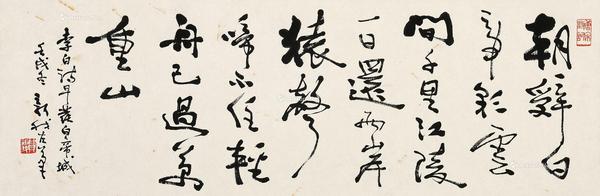 朝辭白
帝彩雲
間千里江陵
一日還兩岸
猿聲
啼不住輕
舟已過萬
重山
李白詩早發白帝城
壬戌冬